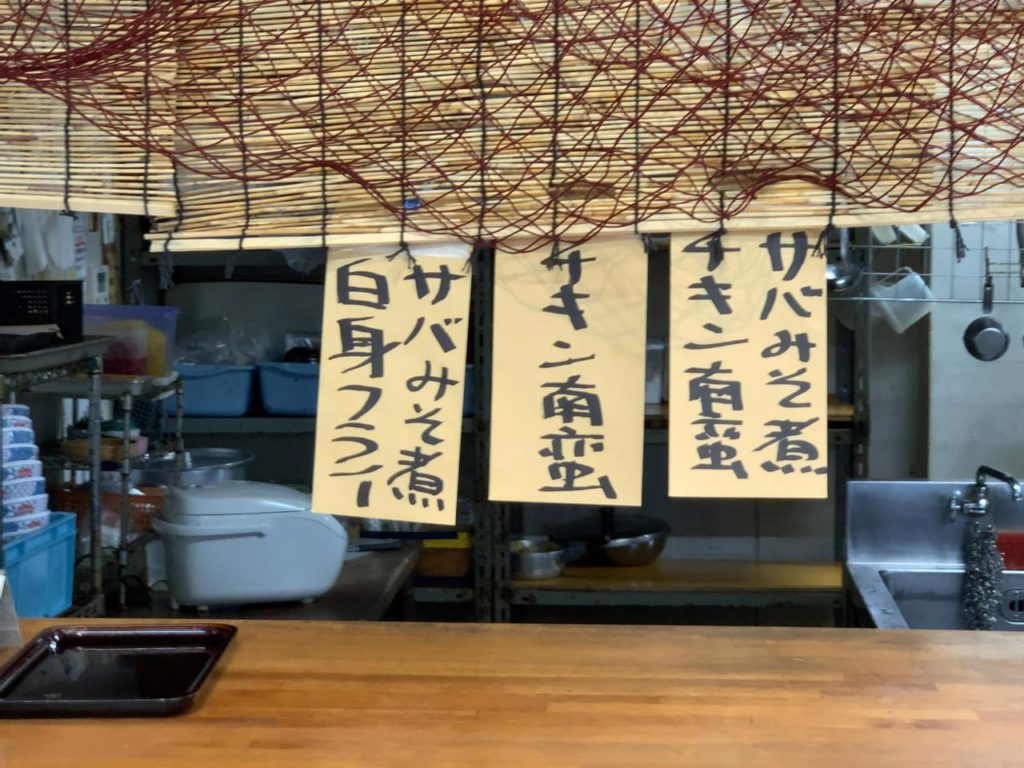 サバみそ煮
チキン南蛮
チキン南蛮
サバみそ煮
白身フライ